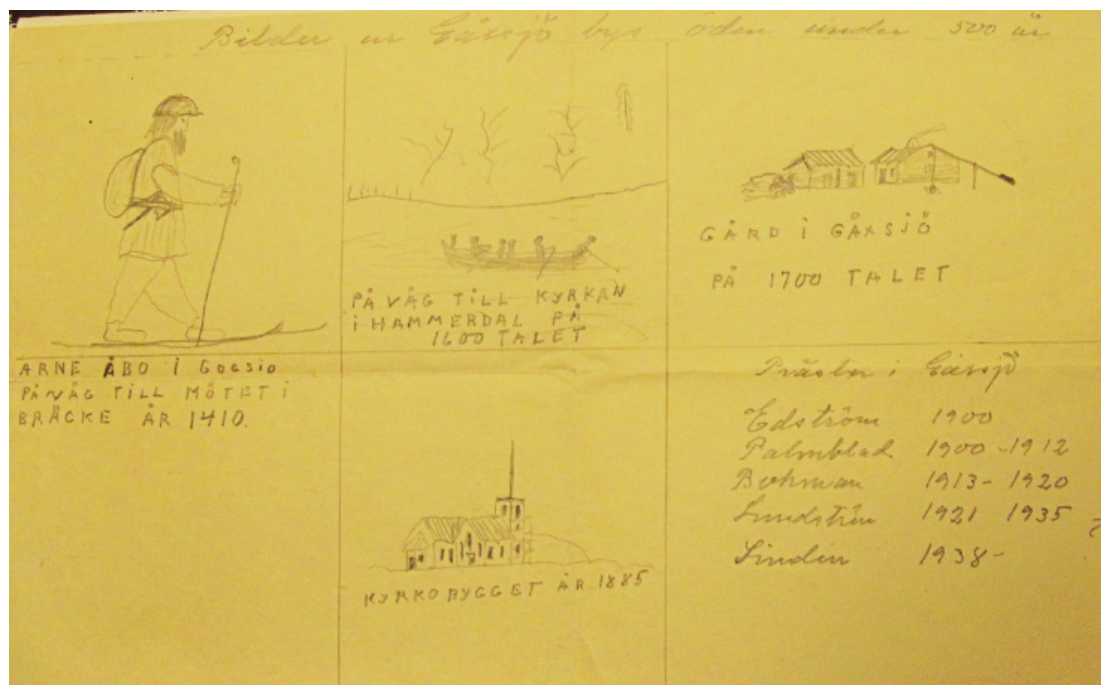 Bilder ur Gåxsjö bys öden under 500 år
ARNE ÅBO i Gocsio
PÅ VÄG TILL MÖTET i
BRÄCKE ÅR 1410.
PÅ VÄG TILL KYRKAN
i HAMMERDAL PÅ
1600 TALET
GÅRD i GÅXSJÖ
PÅ 1700 TALET
KYRKOBYGGET ÅR 1885
Präster i Gåxsjö
Edström 1900
Palmblad 1900-1912
1913- 1920
Lundström 1921 1935
Lindin 1938-